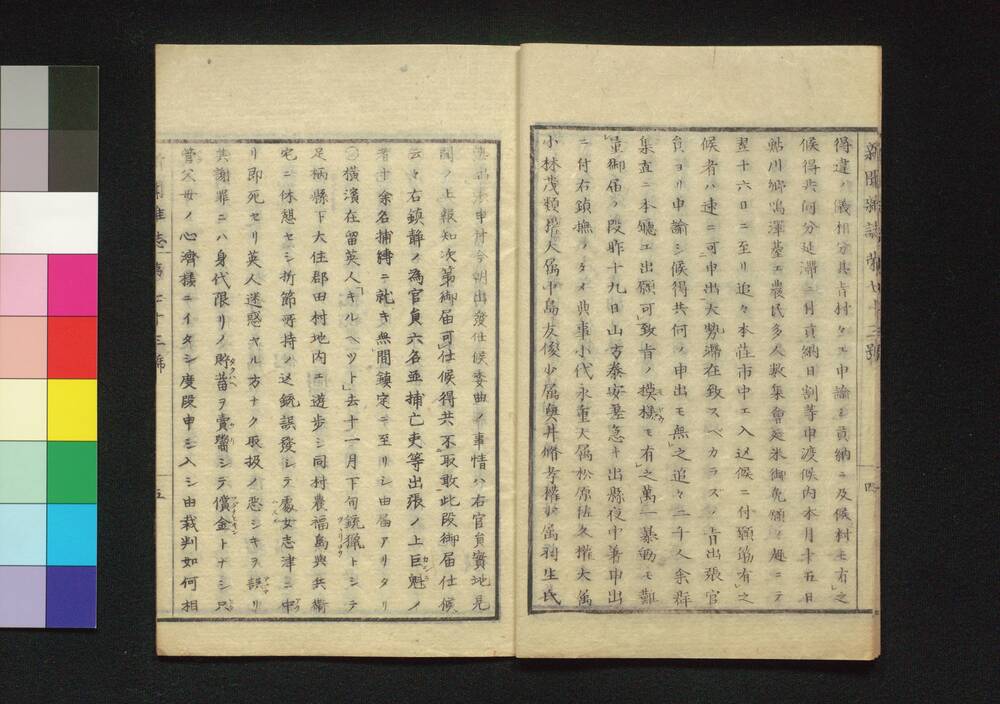 新聞雜誌第七十三號
四
得違ノ儀相分其旨村々エ申諭シ貢納ニ及候村モ有之
候得共何分延滞ニ付貢納日割等申渡候内本月十五日
鮎川郷鳴渾臺エ農民多人數集會延米御免願ノ趣ニテ
翌十六日ニ至リ追々本莊市中エ入込候ニ付願筋有之
候者ハ速ニ可申出大勢滞在致スベカラズノ旨出張官
員ヨリ申諭シ候得共何ノ申出モ無之追々二千人余群
集直ニ本廳エ出願可致旨ノ模樣モ有之萬一暴動モ難
量御届ノ段昨十九日山方泰安墓急キ出縣夜中著申出
ニ付右鎮撫ノタメ典事小代永重大属松原佐久權大属
小林茂類權大属中島友俊少属奥井脩孝權少属羽生氏
熟出張申付今明出發仕候委曲ノ事情ハ右官員實地見
聞ノ上報知次第御届可仕候得共不取敢此段御届仕候
云々右鎮靜ノ為官員六名並捕亡吏等出張ノ上巨魁ノ
者十余名捕縛ニ就キ無間鎮定ニ至リシ由届アリタリ
○横濱在留英人「キルヘツト」去十一月下旬銃獵トシテ
足柄縣下大住郡田村地内エ遊歩シ同村農福島與兵衞
宅ニ休憩セシ折節哥持ノ込銃誤發シテ處女志津ニ中
リ即死セリ英人迷惑ヤル方ナク取扱ノ悪シキヲ誤リ
其謝罪ニハ身代限リノ貯蓄ヲ賣鬻シテ償金トナシ只
管父母ノ心濟樣ニイタシ度段申シ入シ由裁判如何相
新聞雜誌第七十三號
五